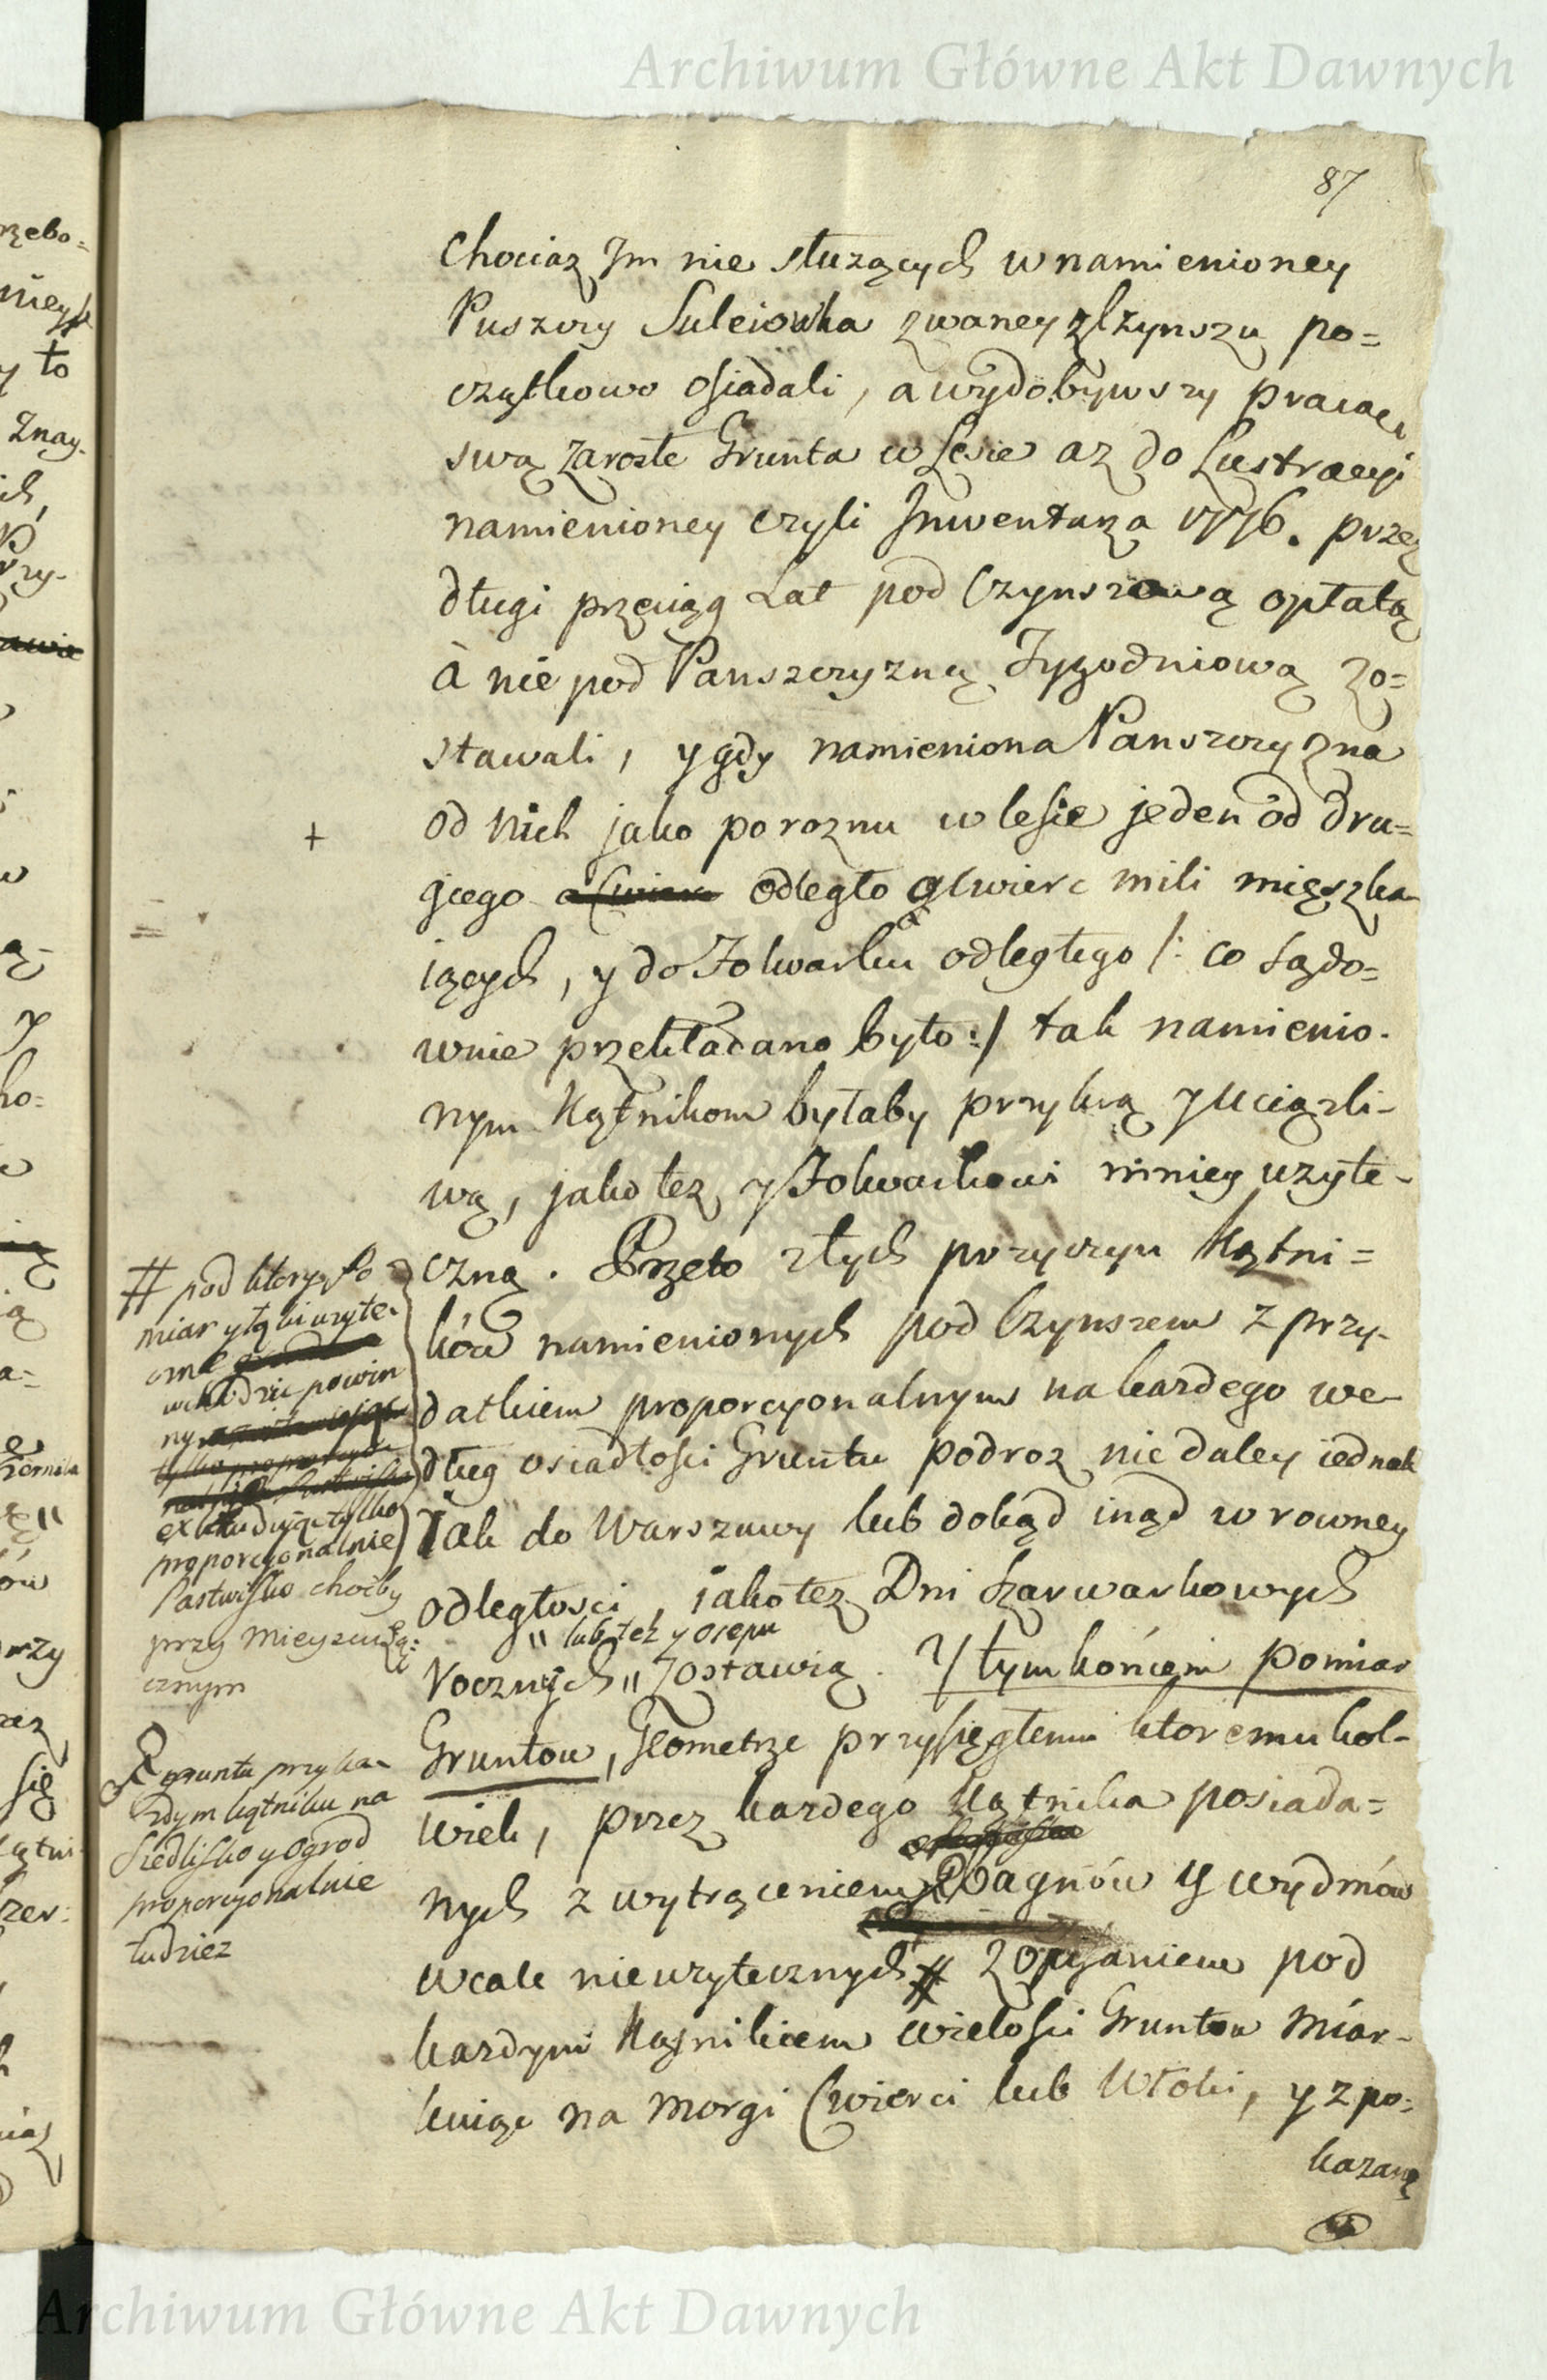 Archiwum Główne Akt Dawnych
87
Chociaz Jm nie służących w namienioney
Puszczy Suleiowka zwaney z Czynszu po=
czątkowo osiadali, a wydobywszy pracą
swą zarosłe Grunta w Lesie az do Lustracyi
namienioney czyli Jnwentarza 1776. przez
długi przeciąg Lat pod Czynszową opłatą
à nie pod Panszczyzną Tygodniową zo=
stawali, y gdy namieniona Panszczyzna
+
od nich jako poroznu w lesie jeden od dru=
giego odległo o cwierc mili mięszka
iących, y do Folwarku odległego /: co sądo=
wnie przekładano było :/ tak namienio-
nym Kątnikom byłaby przykrą y uciązli-
wą, jako tez y Folwarkowi mniey uzyte-
czną. Przeto z tych przyczyn Kątni=
ków namienionych pod Czynszem z przy-
datkiem proporcyonalnym na kazdego we-
dług osiadłosci Gruntu podroz nie daley iednak
Jak do Warszawy lub dokąd inąd w rowney
odległosci, iako tez Dni szarwarkowych
" lub tez y osepu
Rocznych " Zostawią. Y tym końcem pomiar
Gruntow, Geometrze przysięgłemu ktoremukol-
wiek, przez kazdego Kątnika posiada=
nych z wytrąceniem Bagnów y wydmów
wcale nieuzytecznych # z opisaniem pod
kazdym Kątnikiem wielosci Gruntow miar-
kuiąc na morgi Cwierci lub Włoki, y z po=
kazaną
# pod ktory Po
miar y łąki uzyte-
czne
wchodzić powin
ny
excludując tylko
proporcyonalnie
Pastwisko choćby
przy mieyscu łą=
cznym
gruntu przy ka-
zdym kątniku na
Siedlisko y ogrod
proporcyonalnie
tudziez
Archiwum Główne Akt Dawnych